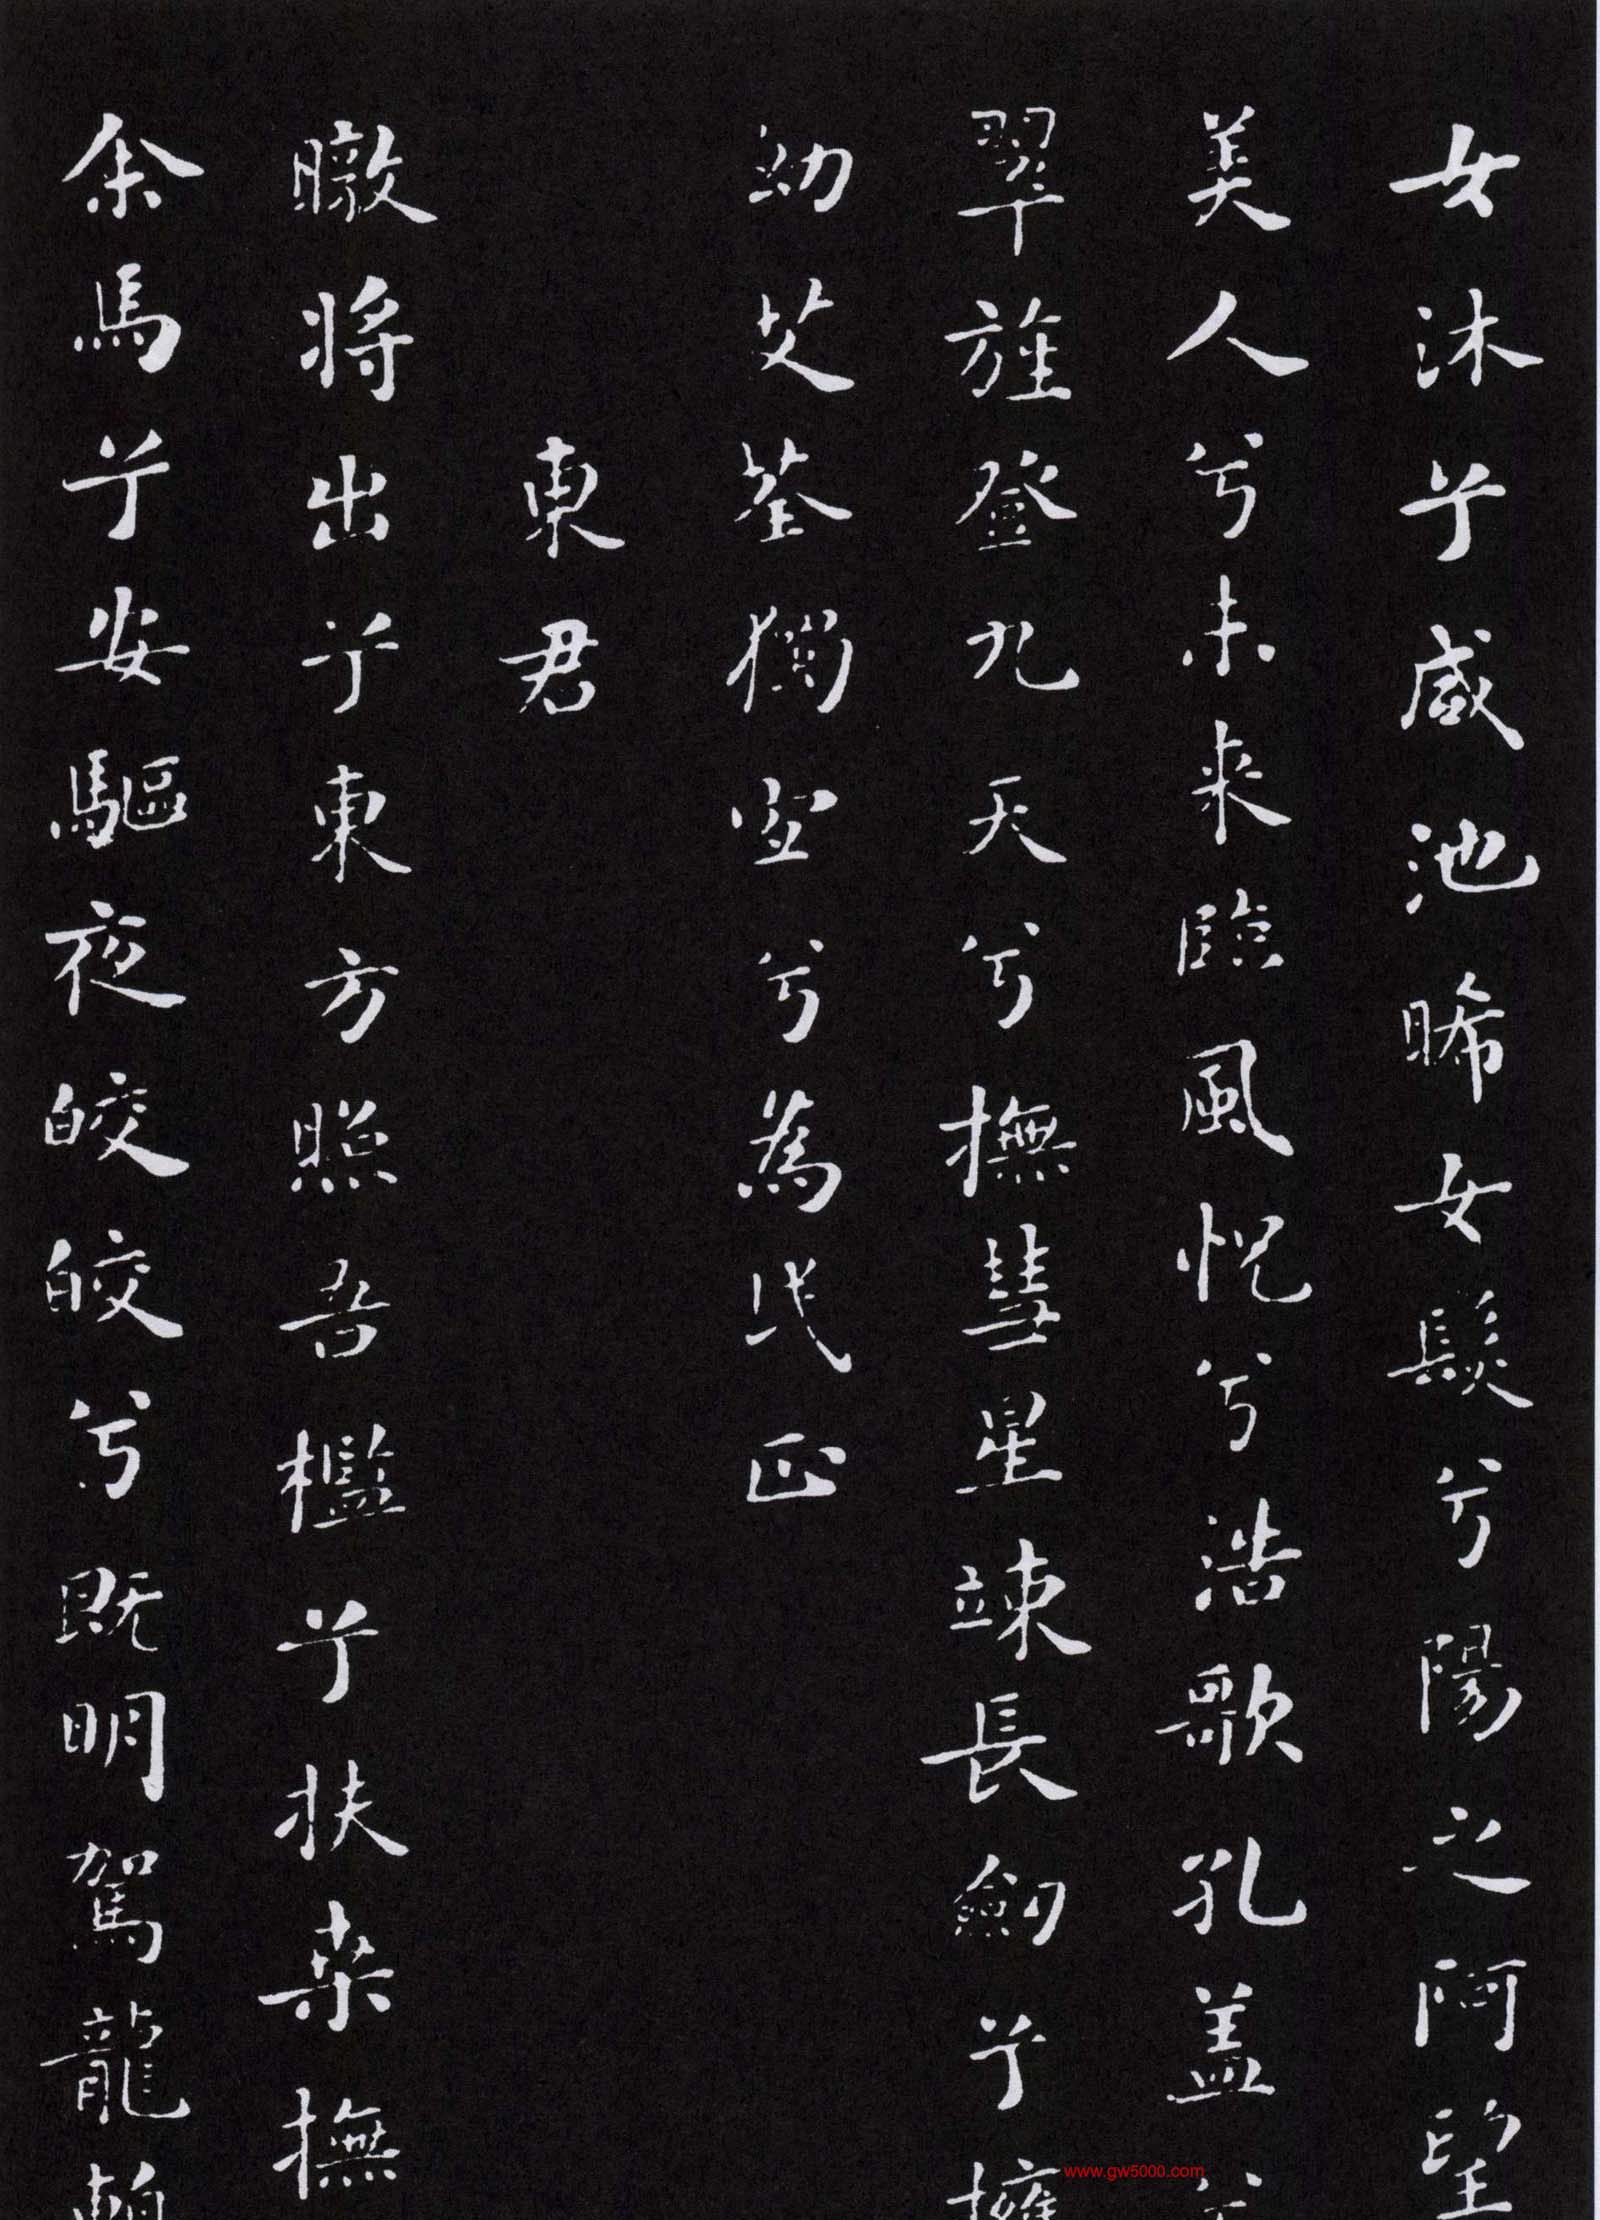 女沐兮咸池晞女髮兮陽之阿望
美人兮未来臨風怳兮浩歌孔盖
翠旌登九天兮撫彗星竦長劒兮擁
幼艾荃獨宜兮為民正
東君
暾將出兮東方照吾檻兮扶桒撫
余馬兮安驅夜皎皎兮既明駕龍輈
www.gw5000.com